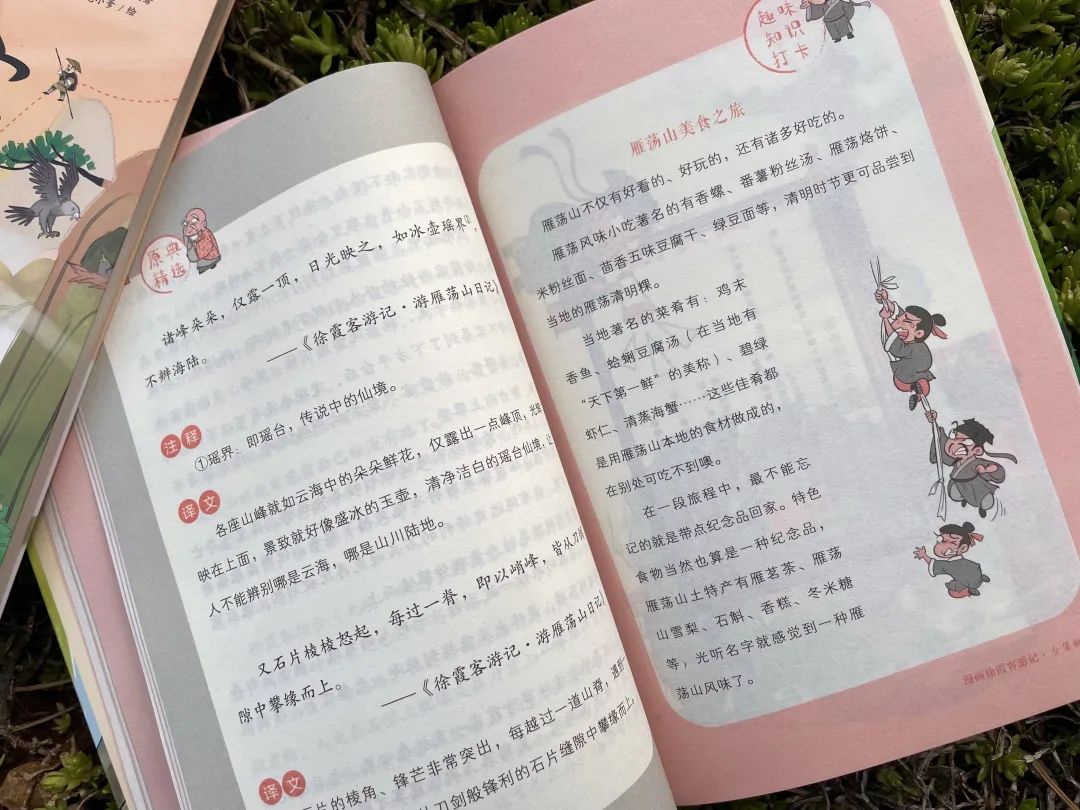 小箬/绘
原典
精选
诸峰朵朵，仅露一顶，日光映之，如冰壶瑶界①，
不辨海陆。
——《徐霞客游记·游雁荡山日记》
注释
①瑶界：即瑶台，传说中的仙境。
译文
各座山峰就如云海中的朵朵鲜花，仅露出一点峰顶，光照
映在上面，景致就好像盛冰的玉壶，清净洁白的瑶台仙境，让
人不能辨别哪是云海，哪是山川陆地。
又石片棱棱怒起，每过一脊，即以峭峰，皆从刀剑
隙中攀缘而上。
——《徐霞客游记·游雁荡山日记》
译文
石片的棱角、锋芒非常突出，每越过一道山脊，遇到
从刀剑般锋利的石片缝隙中攀缘而上。
趣味
知识
打卡
雁荡山美食之旅
雁荡山不仅有好看的、好玩的，还有诸多好吃的。
雁荡风味小吃著名的有香螺、番薯粉丝汤、雁荡烙饼、
米粉丝面、茴香五味豆腐干、绿豆面等，清明时节更可品尝到
当地的雁荡清明粿。
当地著名的菜肴有：鸡末
香鱼、蛤蜊豆腐汤（在当地有
“天下第一鲜”的美称）、碧绿
虾仁、清蒸海蟹……这些佳肴都
是用雁荡山本地的食材做成的，
在别处可吃不到噢。
在一段旅程中，最不能忘
记的就是带点纪念品回家。特色
食物当然也算是一种纪念品，
雁荡山土特产有雁茗茶、雁荡
山雪梨、石斛、香糕、冬米糖
等，光听名字就感觉到一种雁
荡山风味了。
漫画徐霞客游记·少年